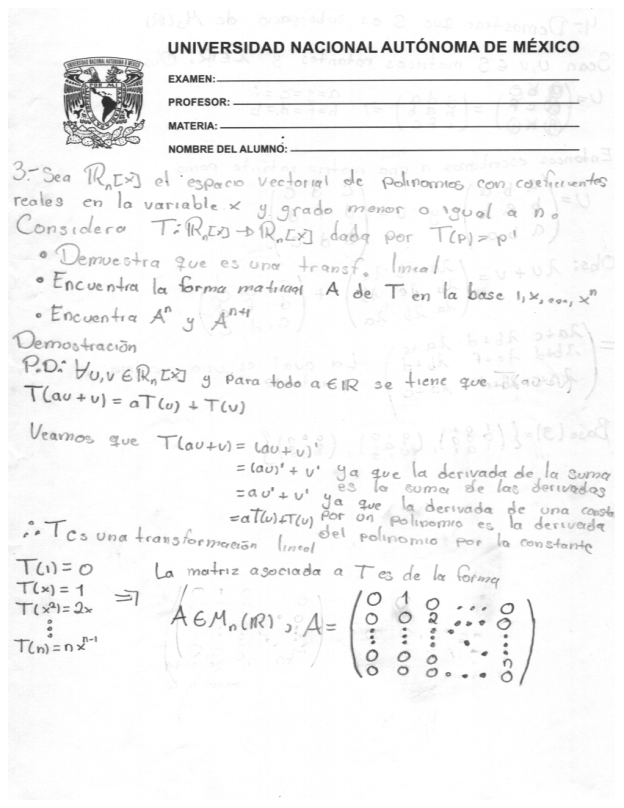 UNIVERSIDAD NACIONAL AUTÓNOMA DE MÉXICO
EXAMEN:
PROFESOR:
MATERIA:
NOMBRE DEL ALUMNO:
3.- Sea ℝₙ[x] el espacio vectorial de polinomios con coeficientes
reales en la variable x y grado menor o igual a n.
Considera T: ℝₙ[x] → ℝₙ[x] dada por T(p) = p'
• Demuestra que es una transf. lineal
• Encuentra la forma matricial A de T en la base 1, x, ..., xⁿ
• Encuentra Aⁿ y Aⁿ⁺¹
Demostración
P.D.: ∀u,v ∈ ℝₙ[x] y para todo a ∈ ℝ se tiene que
T(au + v) = aT(u) + T(v)
Veamos que T(au+v) = (au + v)'
= (au)' + v' ya que la derivada de la suma
es la suma de las derivadas
= au' + v' ya que la derivada de una const
= aT(u)+T(v) por un polinomio es la derivada
del polinomio por la constante
∴ T es una transformación lineal
T(1) = 0 La matriz asociada a T es de la forma
T(x) = 1
T(x²) = 2x ⇒ A ∈ Mₙ(ℝ), A = ( 0 1 0 ... 0
0 0 2 ... 0
⋮ ⋮ ⋮ ⋮
0 0 0 ... n
0 0 0 ... 0 )
⋮
T(n) = n xⁿ⁻¹